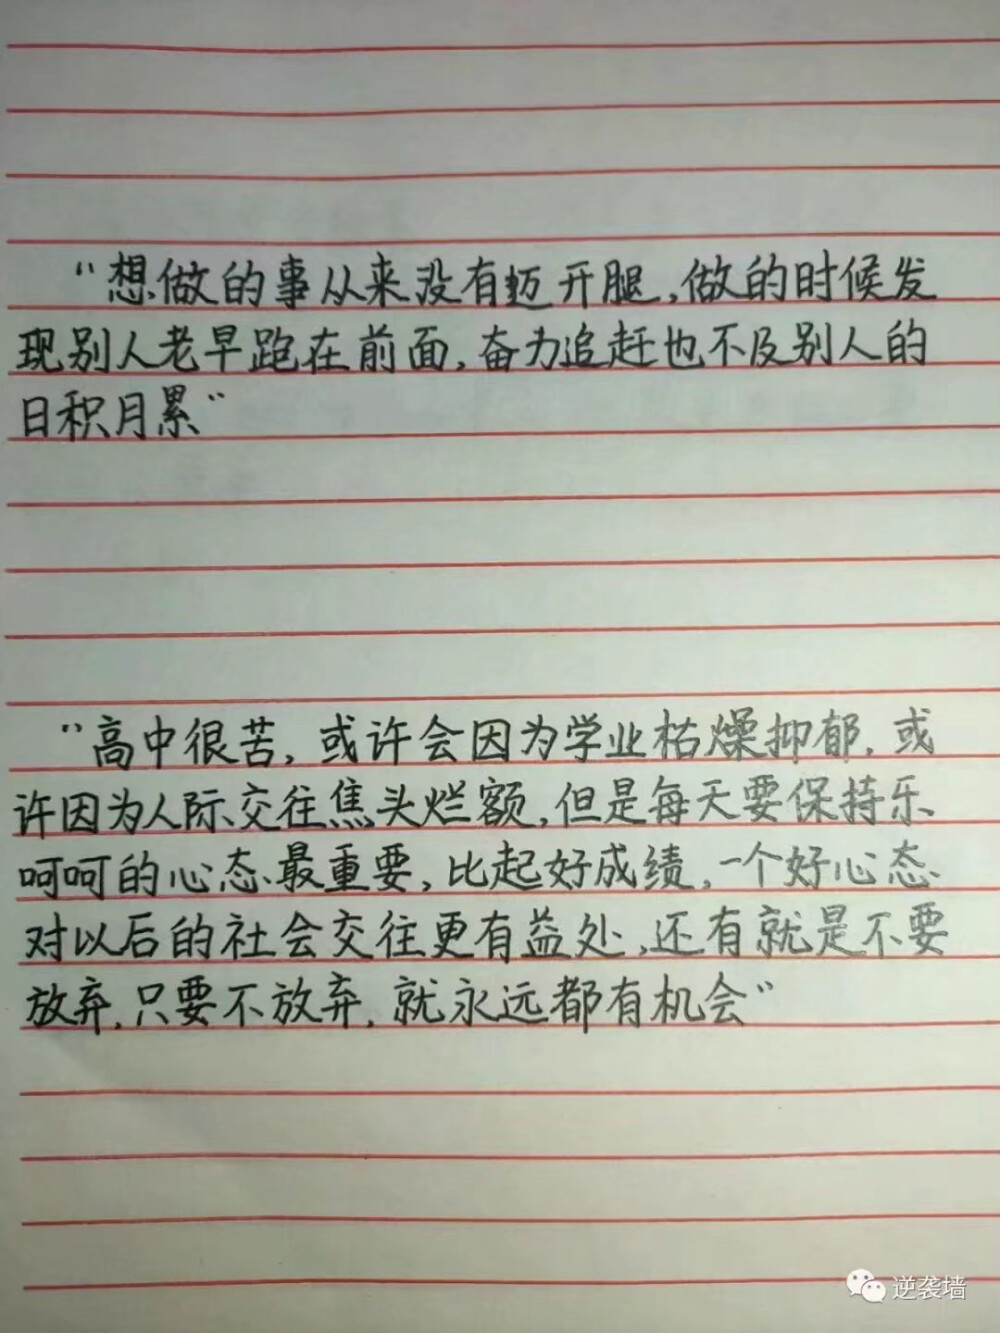 “想做的事从来没有迈开腿,做的时候发
现别人老早跑在前面,奋力追赶也不及别人的
日积月累”
“高中很苦,或许会因为学业枯燥抑郁,或
许因为人际交往焦头烂额,但是每天要保持乐
呵呵的心态最重要,比起好成绩,一个好心态
对以后的社会交往更有益处,还有就是不要
放弃,只要不放弃,就永远都有机会”
逆袭墙